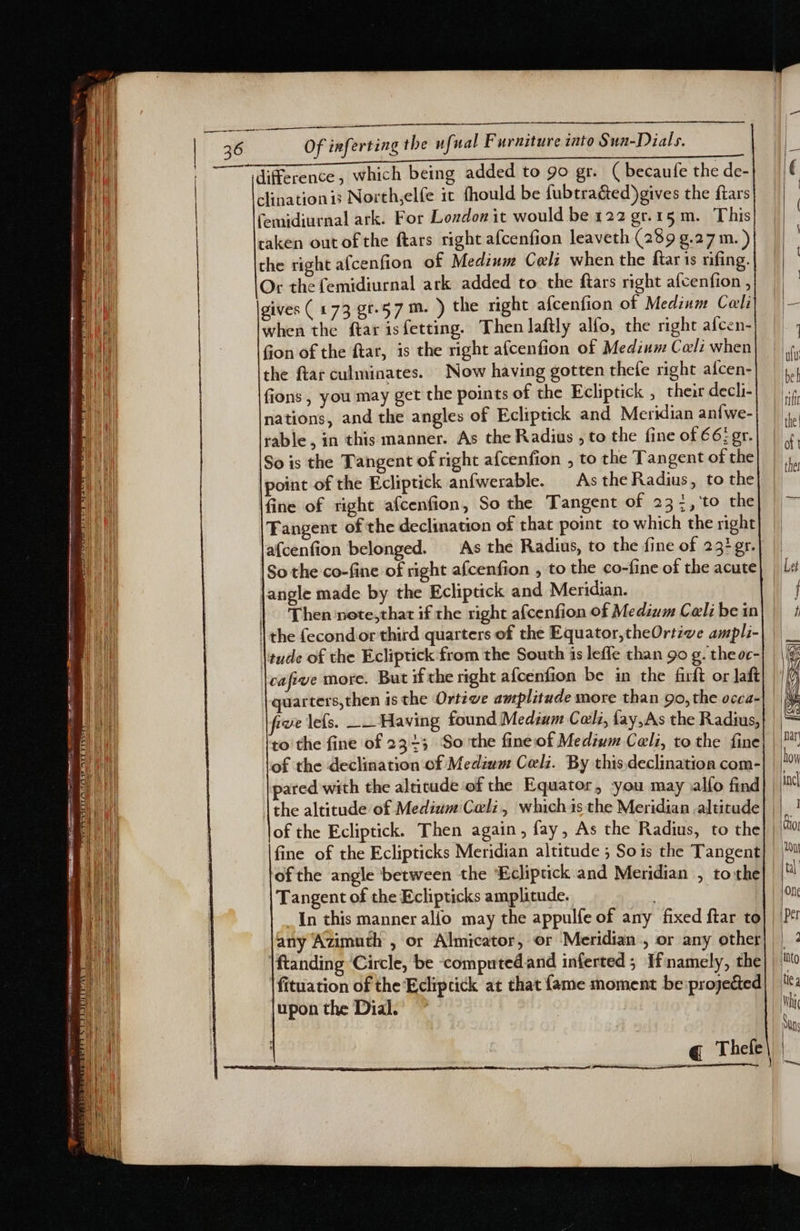 36 Of inſerting the uſual Furniture into Sun-Dials.
difference, which being added to 90 gr. (becauſe the de-
clination is North, elſe it ſhould be ſubtracted) gives the ſtars
ſemidiurnal ark. For London it would be 122 gr. 15 m. This
taken out of the ſtars right aſcenſion leaveth (289 g. 27 m.)
the right aſcenſion of Medium Cœli when the ſtar is riſing.
Or the ſemidiurnal ark added to the ſtars right aſcenſion,
gives (173 gr. 57 m.) the right aſcenſion of Medium Cœli
when the ſtar is ſetting. Then laſtly alſo, the right aſcen-
ſion of the ſtar, is the right aſcenſion of Medium Cœli when
the ſtar culminates. Now having gotten theſe right aſcen-
ſions, you may get the points of the Ecliptick, their decli-
nations, and the angles of Ecliptick and Meridian anſwe-
rable, in this manner. As the Radius, to the ſine of 66½ gr.
So is the Tangent of right aſcenſion, to the Tangent of the
point of the Ecliptick anſwerable. As the Radius, to the
ſine of right aſcenſion, So the Tangent of 23½, to the
Tangent of the declination of that point to which the right
aſcenſion belonged. As the Radius, to the ſine of 23½ gr.
So the co-ſine of right aſcenſion, to the co-ſine of the acute
angle made by the Ecliptick and Meridian.
Then note, that if the right aſcenſion of Medium Cœli be in
the ſecond or third quarters of the Equator, the Ortive ampli-
tude of the Ecliptick from the South is leſſe than 90 g. the oc-
caſive more. But if the right aſcenſion be in the firſt or laſt
quarters, then is the Ortive amplitude more than 90, the occa-
ſive leſs. —— Having found Medium Cœli, ſay, As the Radius,
to the ſine of 23½; So the ſine of Medium Cœli, to the ſine
of the declination of Medium Cœli. By this declination com-
pared with the altitude of the Equator, you may alſo find
the altitude of Medium Cœli, which is the Meridian altitude
of the Ecliptick. Then again, ſay, As the Radius, to the
ſine of the Eclipticks Meridian altitude; So is the Tangent
of the angle between the Ecliptick and Meridian, to the
Tangent of the Eclipticks amplitude.
In this manner alſo may the appulſe of any fixed ſtar to
any Azimuth, or Almicator, or Meridian, or any other
ſtanding Circle, be computed and inſerted; If namely, the
ſituation of the Ecliptick at that ſame moment be projected
upon the Dial.
¶ Theſe